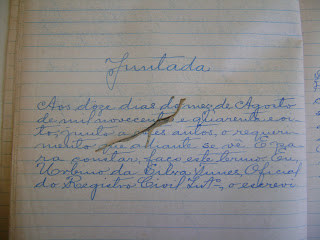 Juntada
Aos doze dias do mez de Agosto
de mil novecentos e quarenta e oi-
to, junto a estes autos, o requeri-
mento que adiante se vê. E pa-
ra constar, faço este termo. Eu,
Urbino da Silva Lunes, Oficial
do Registro Civil Intº, o escrevi